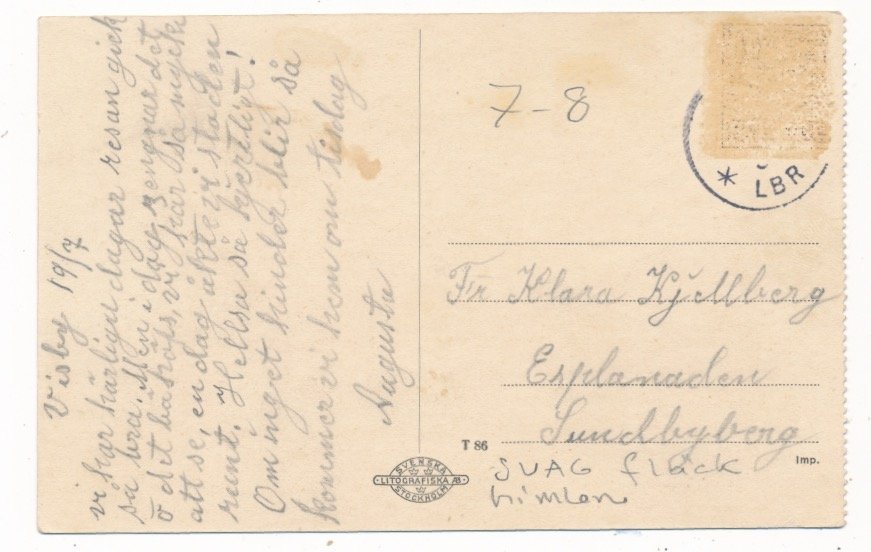 Visby 19/7
vi har härliga dagar resan gick
så bra. Men i dag rengnar det
o det bahövs, vi har så mycke
att se, en dag åkte vi staden
runt. Hellsa så hjertligt!
Om inget hinder blir så
kommer vi hem om tisdag
Augusta
7-8
* LBR
Fr Klara Kjellberg
Esplanaden
Sundbyberg
T 86
Imp.
SVENSKA
LITOGRAFISKA AB
STOCKHOLM
SVAG fläck
himlen